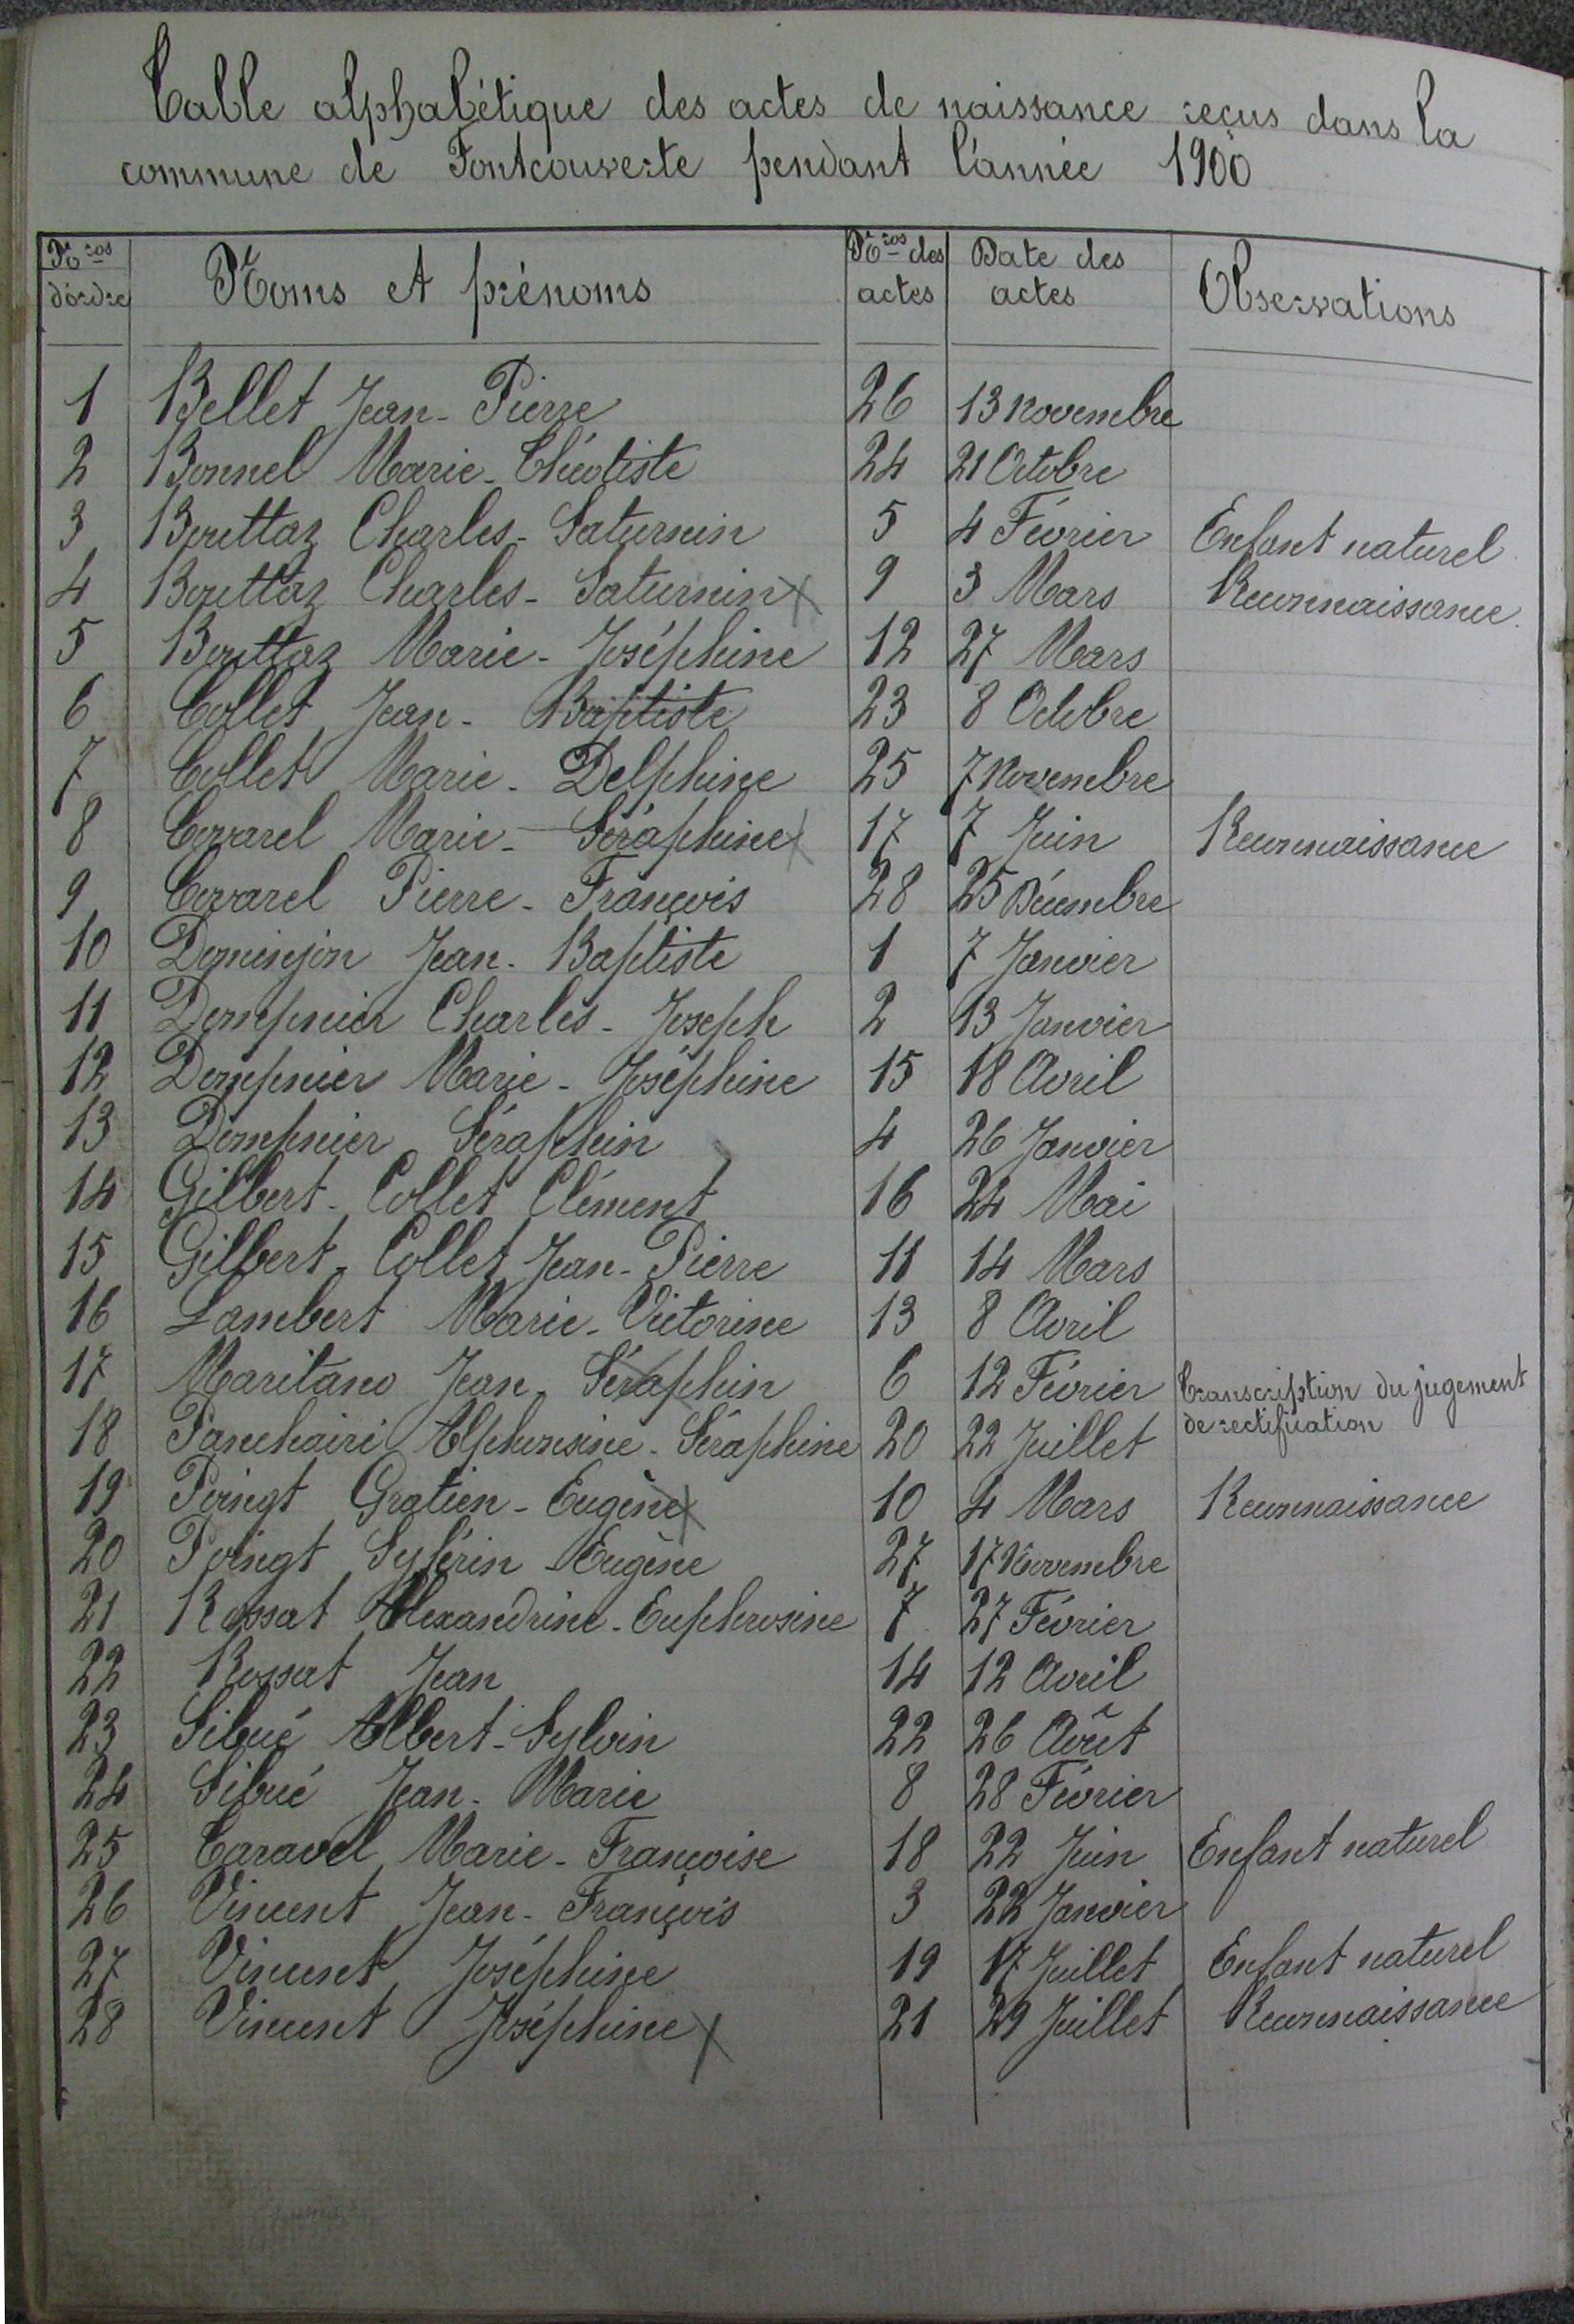 Table alphabétique des actes de naissance reçus dans la
commune de Fontcouverte pendant l'année 1900
Nros d'ordre Noms et prénoms Nros des actes Date des actes Observations
1 Bellet Jean-Pierre 26 13 Novembre
2 Bonnel Marie-Théotiste 24 21 Octobre
3 Bouttaz Charles-Saturnin 5 4 Février Enfant naturel
4 Bouttaz Charles-Saturnin 9 3 Mars Reconnaissance
5 Bouttaz Marie-Joséphine 12 27 Mars
6 Collet Jean-Baptiste 23 8 Octobre
7 Collet Marie-Delphine 25 7 Novembre
8 Covarel Marie-Séraphine 17 7 Juin Reconnaissance
9 Covarel Pierre-François 28 25 Décembre
10 Dominjon Jean-Baptiste 1 7 Janvier
11 Dompnier Charles-Joseph 2 13 Janvier
12 Dompnier Marie-Joséphine 15 18 Avril
13 Dompnier Séraphin 4 26 Janvier
14 Gilbert-Collet Clément 16 24 Mai
15 Gilbert-Collet Jean-Pierre 11 14 Mars
16 Lambert Marie-Victorine 13 8 Avril
17 Maritano Jean-Séraphin 6 12 Février Transcription du jugement
de rectification
18 Panchairi Alphonsine-Séraphine 20 22 Juillet
19 Poingt Gratien-Eugène 10 4 Mars Reconnaissance
20 Poingt Sylérin-Eugène 27 17 Novembre
21 Rossat Alexandrine-Euphrosine 7 27 Février
22 Rossat Jean 14 12 Avril
23 Sibué Albert-Sylvin 22 26 Août
24 Sibué Jean-Marie 8 28 Février
25 Taravel Marie-Françoise 18 22 Juin Enfant naturel
26 Vincent Jean-François 3 22 Janvier
27 Vincent Joséphine 19 17 Juillet Enfant naturel
28 Vincent Joséphine 21 29 Juillet Reconnaissance